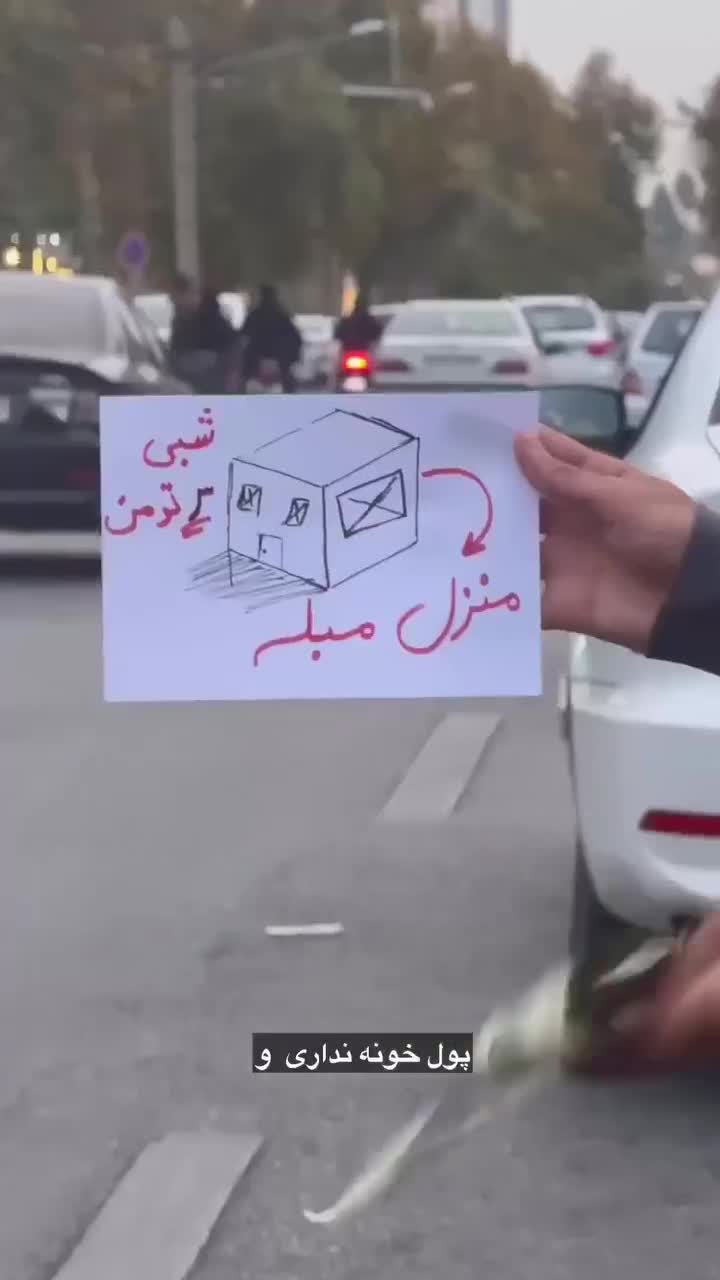 شبی
تومن
منزل مبله
پول خونه نداری و